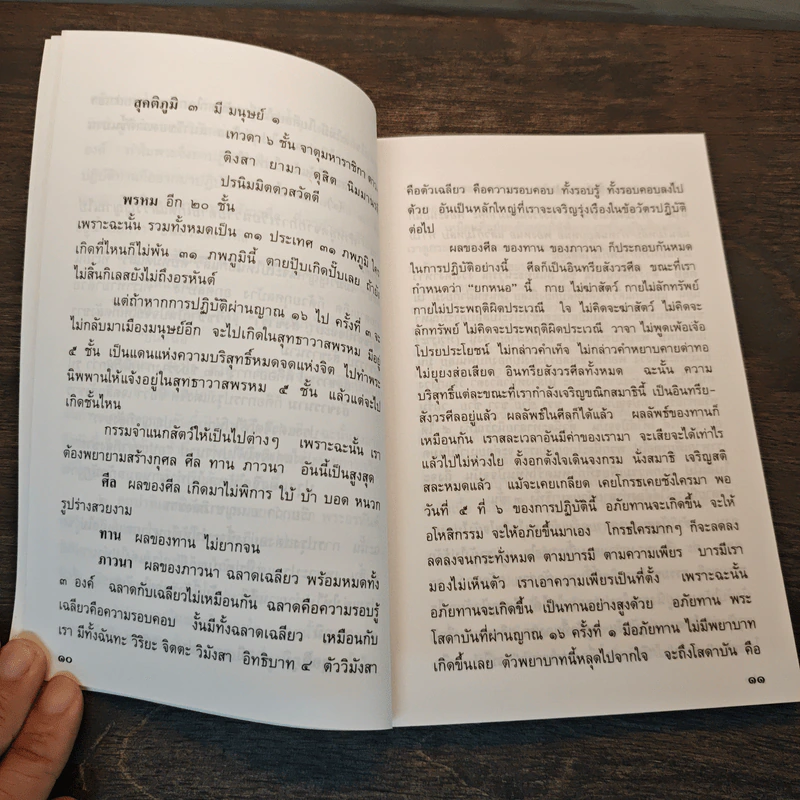 สุคติภูมิ ๓ มี มนุษย์ ๑
เทวดา ๖ ชั้น จาตุมหาราชิกา
ติงสา ยามา ดุสิต
ปรนิมมิตตวสวัตตี
พรหม อีก ๒๐ ชั้น
เพราะฉะนั้น รวมทั้งหมดเป็น ๓๑ ประเทศ ๓๑ ภพภูมิ
เกิดที่ไหนก็ไม่พ้น ๓๑ ภพภูมินี้ ตายปุ๊บเกิดปั๊บเลย
ไม่สิ้นกิเลสยังไม่ถึงอรหันต์
แต่ถ้าหากการปฏิบัติผ่านญาณ ๑๖ ไป ครั้งที่ ๓ จะ
ไม่กลับมาเมืองมนุษย์อีก จะไปเกิดในสุทธาวาสพรหม มีอยู่
๕ ชั้น เป็นแดนแห่งความบริสุทธิ์หมดจดแห่งจิต ไปทำพระ
นิพพานให้แจ้งอยู่ในสุทธาวาสพรหม ๕ ชั้น แล้วแต่จะไป
เกิดชั้นไหน
กรรมจำแนกสัตว์ให้เป็นไปต่างๆ เพราะฉะนั้น เรา
ต้องพยายามสร้างกุศล ศีล ทาน ภาวนา อันนี้เป็นสูงสุด
ศีล ผลของศีล เกิดมาไม่พิการ ใบ้ บ้า บอด หนวก
รูปร่างสวยงาม
ทาน ผลของทาน ไม่ยากจน
ภาวนา ผลของภาวนา ฉลาดเฉลียว พร้อมหมดทั้ง
๓ องค์ ฉลาดกับเฉลียวไม่เหมือนกัน ฉลาดคือความรอบรู้
เฉลียวคือความรอบคอบ งั้นมีทั้งฉลาดเฉลียว เหมือนกับ
เรา มีทั้งฉันทะ วิริยะ จิตตะ วิมังสา อิทธิบาท ๔ ตัววิมังสา
๑๐
คือตัวเฉลียว คือความรอบคอบ ทั้งรอบรู้ ทั้งรอบคอบลงไป
ด้วย อันเป็นหลักใหญ่ที่เราจะเจริญรุ่งเรืองในข้อวัตรปฏิบัติ
ต่อไป
ผลของศีล ของทาน ของภาวนา ก็ประกอบกันหมด
ในการปฏิบัติอย่างนี้ ศีลก็เป็นอินทรียสังวรศีล ขณะที่เรา
กำหนดว่า “ยกหนอ” นี้ กาย ไม่ฆ่าสัตว์ กายไม่ลักทรัพย์
กายไม่ประพฤติผิดประเวณี ใจ ไม่คิดจะฆ่าสัตว์ ไม่คิดจะ
ลักทรัพย์ ไม่คิดจะประพฤติผิดประเวณี วาจา ไม่พูดเพ้อเจ้อ
โปรยประโยชน์ ไม่กล่าวคำเท็จ ไม่กล่าวคำหยาบคายด่าทอ
ไม่ยุยงส่อเสียด อินทรียสังวรศีลทั้งหมด ฉะนั้น ความ
บริสุทธิ์แต่ละขณะที่เรากำลังเจริญขณิกสมาธินี้ เป็นอินทรีย-
สังวรศีลอยู่แล้ว ผลลัพธ์ในศีลก็ได้แล้ว ผลลัพธ์ของทานก็
เหมือนกัน เราสละเวลาอันมีค่าของเรามา จะเสียจะได้เท่าไร
แล้วไปไม่ห่วงใย ตั้งอกตั้งใจเดินจงกรม นั่งสมาธิ เจริญสติ
สละหมดแล้ว แม้จะเคยเกลียด เคยโกรธเคยชังใครมา พอ
วันที่ ๕ ที่ ๖ ของการปฏิบัตินี้ อภัยทานจะเกิดขึ้น จะให้
อโหสิกรรม จะให้อภัยขึ้นมาเอง โกรธใครมากๆ ก็จะลดลง
ลดลงจนกระทั่งหมด ตามบารมี ตามความเพียร บารมีเรา
มองไม่เห็นตัว เราเอาความเพียรเป็นที่ตั้ง เพราะฉะนั้น
อภัยทานจะเกิดขึ้น เป็นทานอย่างสูงด้วย อภัยทาน พระ
โสดาบันที่ผ่านญาณ ๑๖ ครั้งที่ ๑ มีอภัยทาน ไม่มีพยาบาท
เกิดขึ้นเลย ตัวพยาบาทนี้หลุดไปจากใจ จะถึงโสดาบัน คือ
๑๑